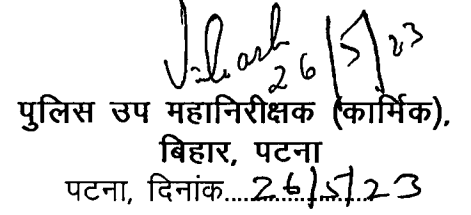 26/5/23
पुलिस उप महानिरीक्षक (कार्मिक),
बिहार, पटना
पटना, दिनांक....26/5/23